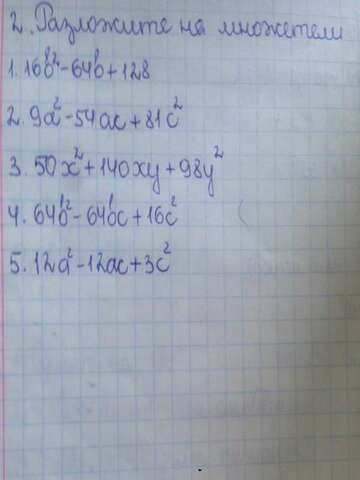 2. Разложите на множетели
1. 16b²-64b+128
2. 9a²-54ac+81c²
3. 50x²+140xy+98y²
4. 64b²-64bc+16c²
5. 12a²-12ac+3c²